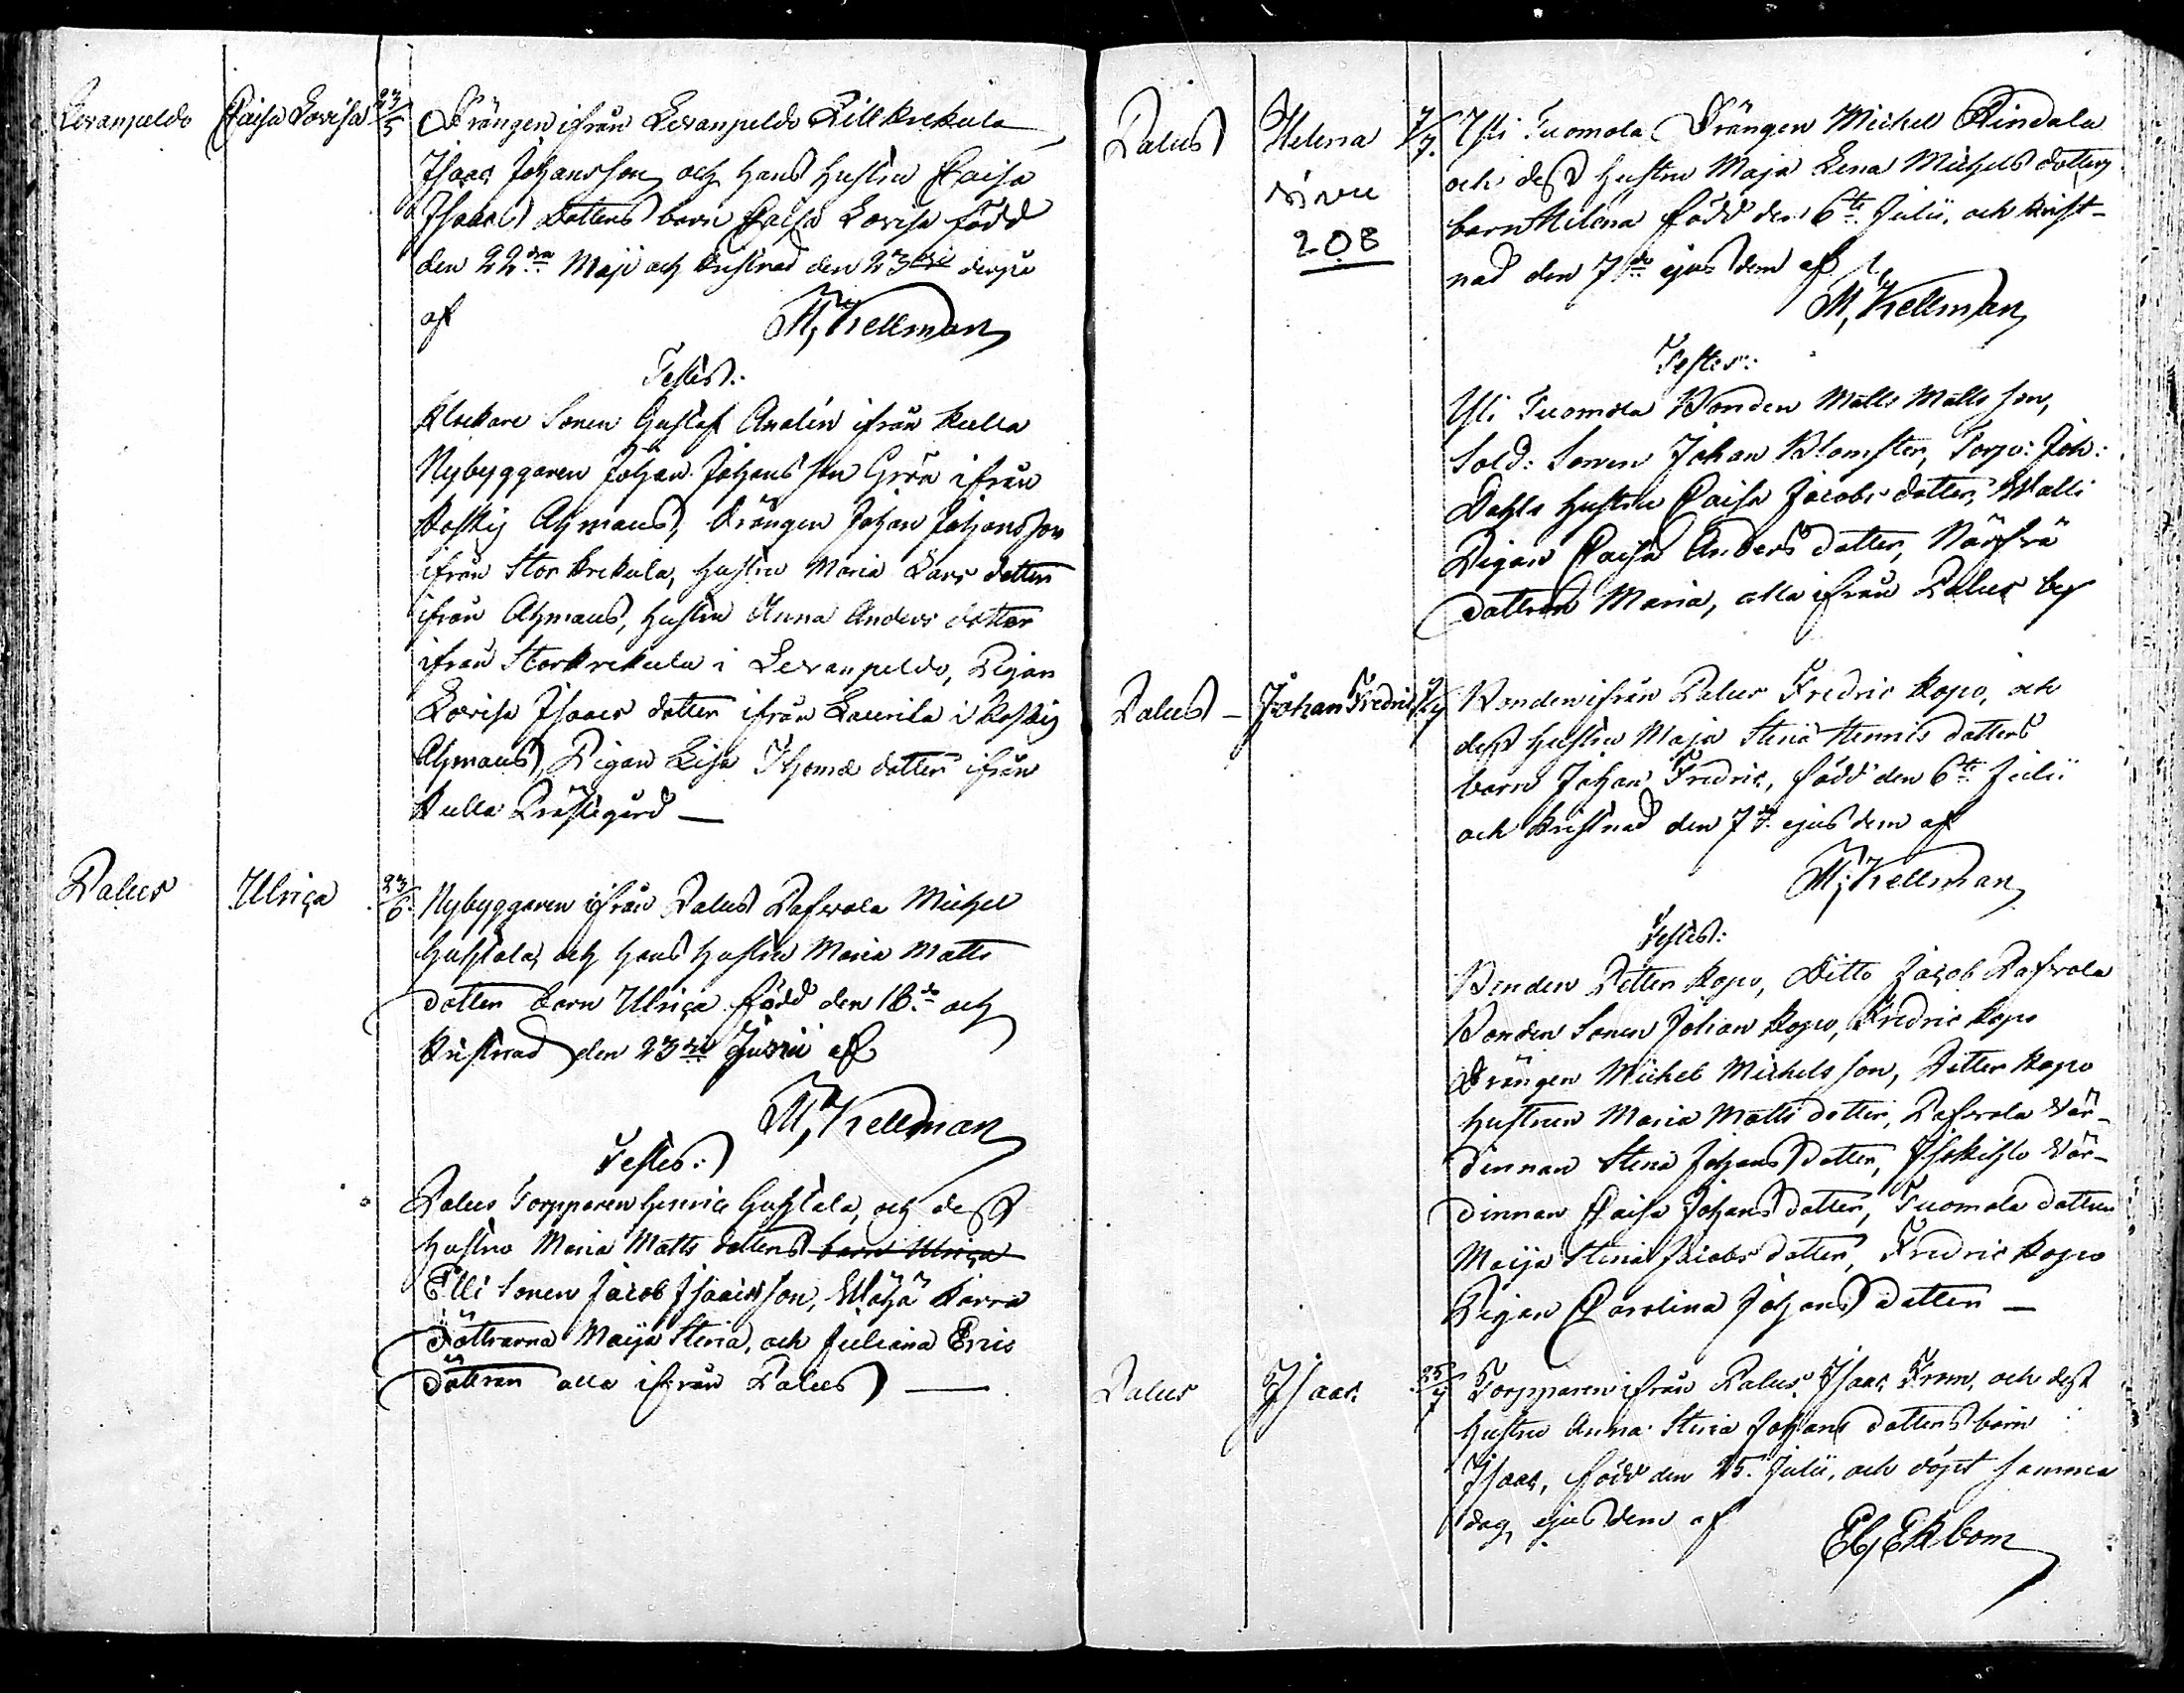 Levanpeldo Caisa Lovisa 23/5 Drängen ifrån Levanpeldo Lill Krekula
Isaac Johansson och hans hustru Caisa
Isaacs dotters barn Caisa Lovisa född
den 22dra Maji och kristnad den 23dje derpå
af M, Kellman
Testes:
Klockare Sonen Gustaf Analin ifrån Kulla
Nybyggaren Johan Johansson Grön ifrån
Ahmaus, Drängen Johan Johansson
ifrån Stor Krekula, hustru Maria Lars dotter
ifrån Ahmaus, hustru Anna Anders dotter
ifrån Storkrekula i Levanpeldo, Pigan
Lovisa Isaacs dotter ifrån Laurila i
Ahmaus, Pigan Lisa Thoma dotter ifrån
Kulla Prästegård —
Palus Ulrica 23/6 Nybyggaren ifrån Palus Pafvola Michel
och hans hustru Maria Matts
dotter barn Ulrica född den 18de och
kristnad den 23dje Junii af
M, Kellman
Testes:
Palus Torpparen Henric och dess
hustru Maria Matts dotters barn Ulrica
Elli Sonen Jacob Isaacsson,
döttrarna Maija Stina, och Juliana Erics
döttrar alla ifrån Palus —
Palus Helena 7/7. Yli Tuomola Drängen Michel Rindala
och dess hustru Maja Lena Michels dotters
sivu
barn Helena född den 6te Julii, och krist-
208
nad den 7de ejusdem af
M, Kellman
Testes:
Yli Tuomola Bonden Matts Matts son,
Sold: Sonen Johan Blomster, Torp: Joh:
Dahls hustru Caisa Jacobs dotter,
Pigan Caisa Anders dotter, Närfvä
dottren Maria, alla ifrån Palus by
Palus — Johan Fredric 7/7 Bonden ifrån Palus Fredric Kopo, och
dess hustru Maja Stina Hennis dotters
barn Johan Fredric, född den 6te Julii
och kristnad den 7de ejusdem af
M, Kellman
Testes:
Bonden Petter Kopo, Ditto Jacob Pafvola
Bonden Sonen Johan Kopo, Fredric Kopo
Drängen Michel Michelsson, Petter Kopo
hustrun Maria Matts dotter, Pafvola Vär-
dinnan Stina Johans dotter, Vär-
dinnan Caisa Johans dotter, Tuomola dottren
Maija Stina Jacobs dotter, Fredric Kopo
Pigan Carolina Johans dotter —
Palus Isaac 25/7 Torpparen ifrån Palus Isaac From, och dess
hustru Anna Stina Johans dotters barn
Isaac, född den 25. Julii, och döpt samma
dag ejusdem af Ekbom